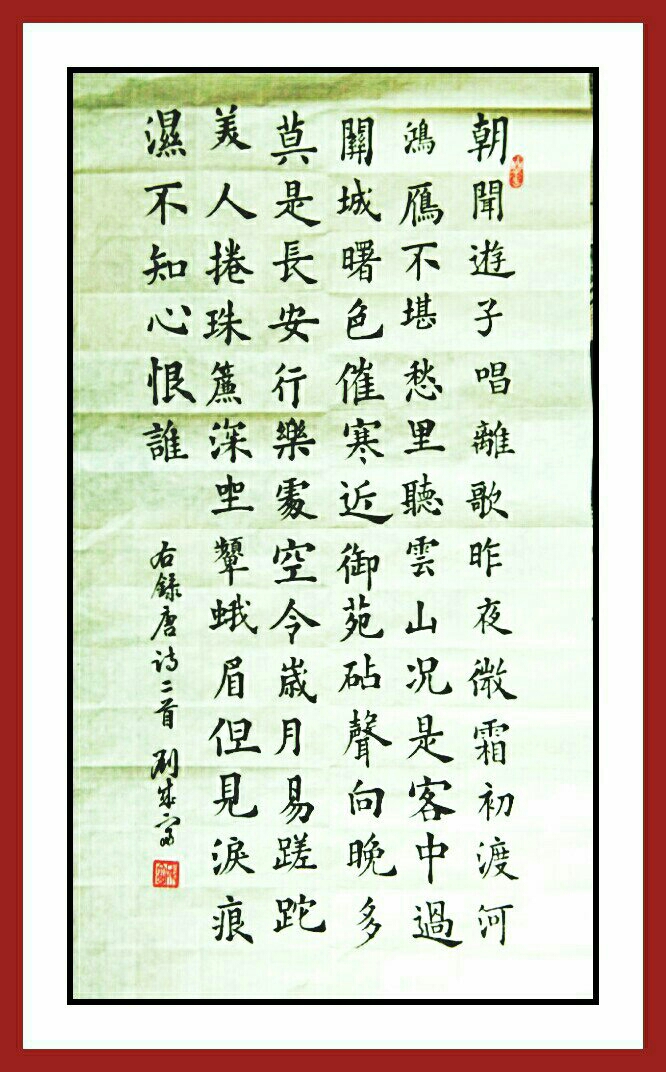 朝聞遊子唱離歌昨夜微霜初渡河
鴻鴈不堪愁里聽雲山况是客中過
關城曙色催寒近御苑砧聲向晚多
莫是長安行樂處空令歲月易蹉跎
美人捲珠簾深坐顰蛾眉但見淚痕
濕不知心恨誰
右録唐诗二首 刘成富